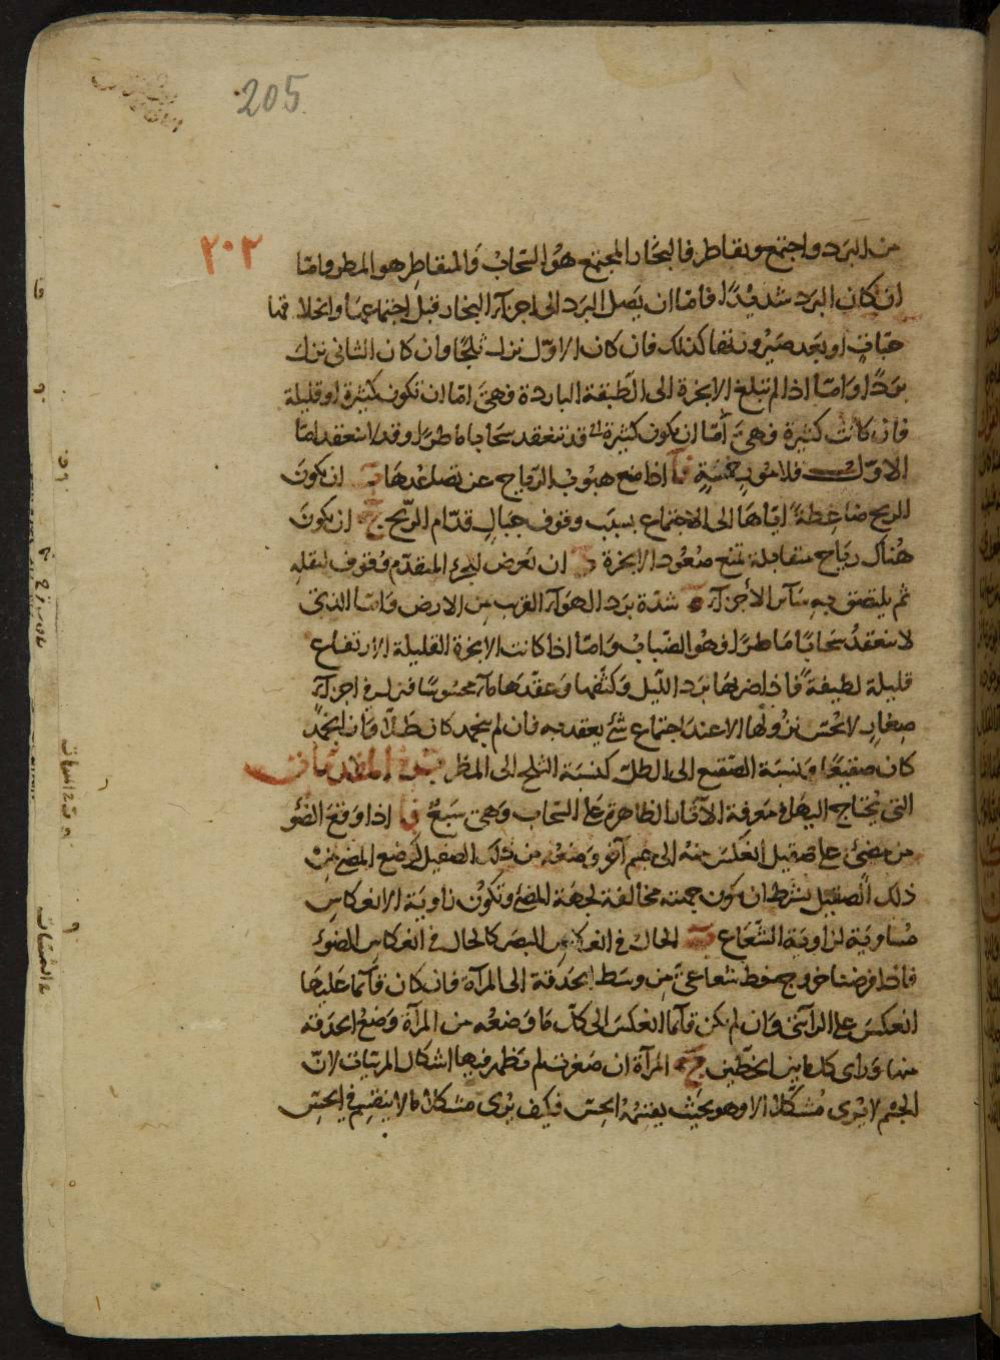 205
٢٠٢
من البرد واجتمع وتقاطر فالبخار المجتمع هو السحاب والمتقاطر هو المطر واما
ان كان البرد شديدًا فاما ان يصل البرد الى اجزآء البخار قبل اجتماعها وانخلاقها
حبّاتٍ او بعد صيرورتها كذلك فان كان الاوّل نزل ثلجًا وان كان الثانى نزل
بردًا وامّا اذا لم تبلغ الابخرة الى الطبقة الباردة فهى امّا ان تكون كثيرة او قليلة
فان كانت كثيرة فهى امّا ان يكون كثيرة قد تنعقد سحابا ماطرًا وقد لا تنعقد امّا
الاوّل فلاسباب خمسةٍ آ اذا منع هبوب الرياح عن تصاعدها ب ان يكون
الريح ضاغطةً ايّاها الى الاجتماع بسبب وقوف جبالٍ قدّام الريح ج ان يكون
هناك رياح متقابلة تمنع صعود الابخرة د ان يعرض للجزء المتقدّم وقوف لثقله
ثم يلتصق به سآئر الأجزآء ه شدّة برد الهوآء القريب من الارض وامّا الذى
لا ينعقد سحابًا ماطرًا فهو الضباب وامّا اذا كانت الابخرة القليلة الارتفاع
قليلة لطيفةً فاذا ضربها برد الليل وكثّفها وعقّدها مآء محسوسًا فنزل فى اجزآء
صغارٍ لا يحسّ نزولها الا عند اجتماع شئ يعتد به فان لم يجمد كان طلًّا وان انجمد
كان صقيعًا ونسبة الصقيع الى الطلّ كنسبة الثلج الى المطر المقدمات
التى يحتاج اليها فى معرفة الآثار الظاهرة على السحاب وهى سبعٌ آ اذا وقع الضوْ
من مضئ على صقيل انعكس منه الى جسم آخر وضعه من ذلك الصقيل كوضع المضئ من
ذلك الصقيل بشرط ان يكون جهته مخالفة لجهة المضئ وتكون زاوية الانعكاس
مساوية لزاوية الشعاع ب الحال فى انعكاس البصر كالحال فى انعكاس الضوء
فاذا فرضنا خروج خط شعاعىّ من وسط الحدقة الى المرآة فان كان قآئما عليها
انعكس على الرآئى وان لم يكن قآئما انعكس الى كلّ ما وضعه من المرآة وضع الحدقة
منها وراى كل ما بين الخطّين ج المرآة ان صغرت لم تظهر فيها اشكال المرئيات لانّ
الجسم لا يُرى مُشكّلًا الا وهو بحيث يقسّمه الحسّ فكيف يُرى مشكلا ما لا ينقسم فى الحسّ